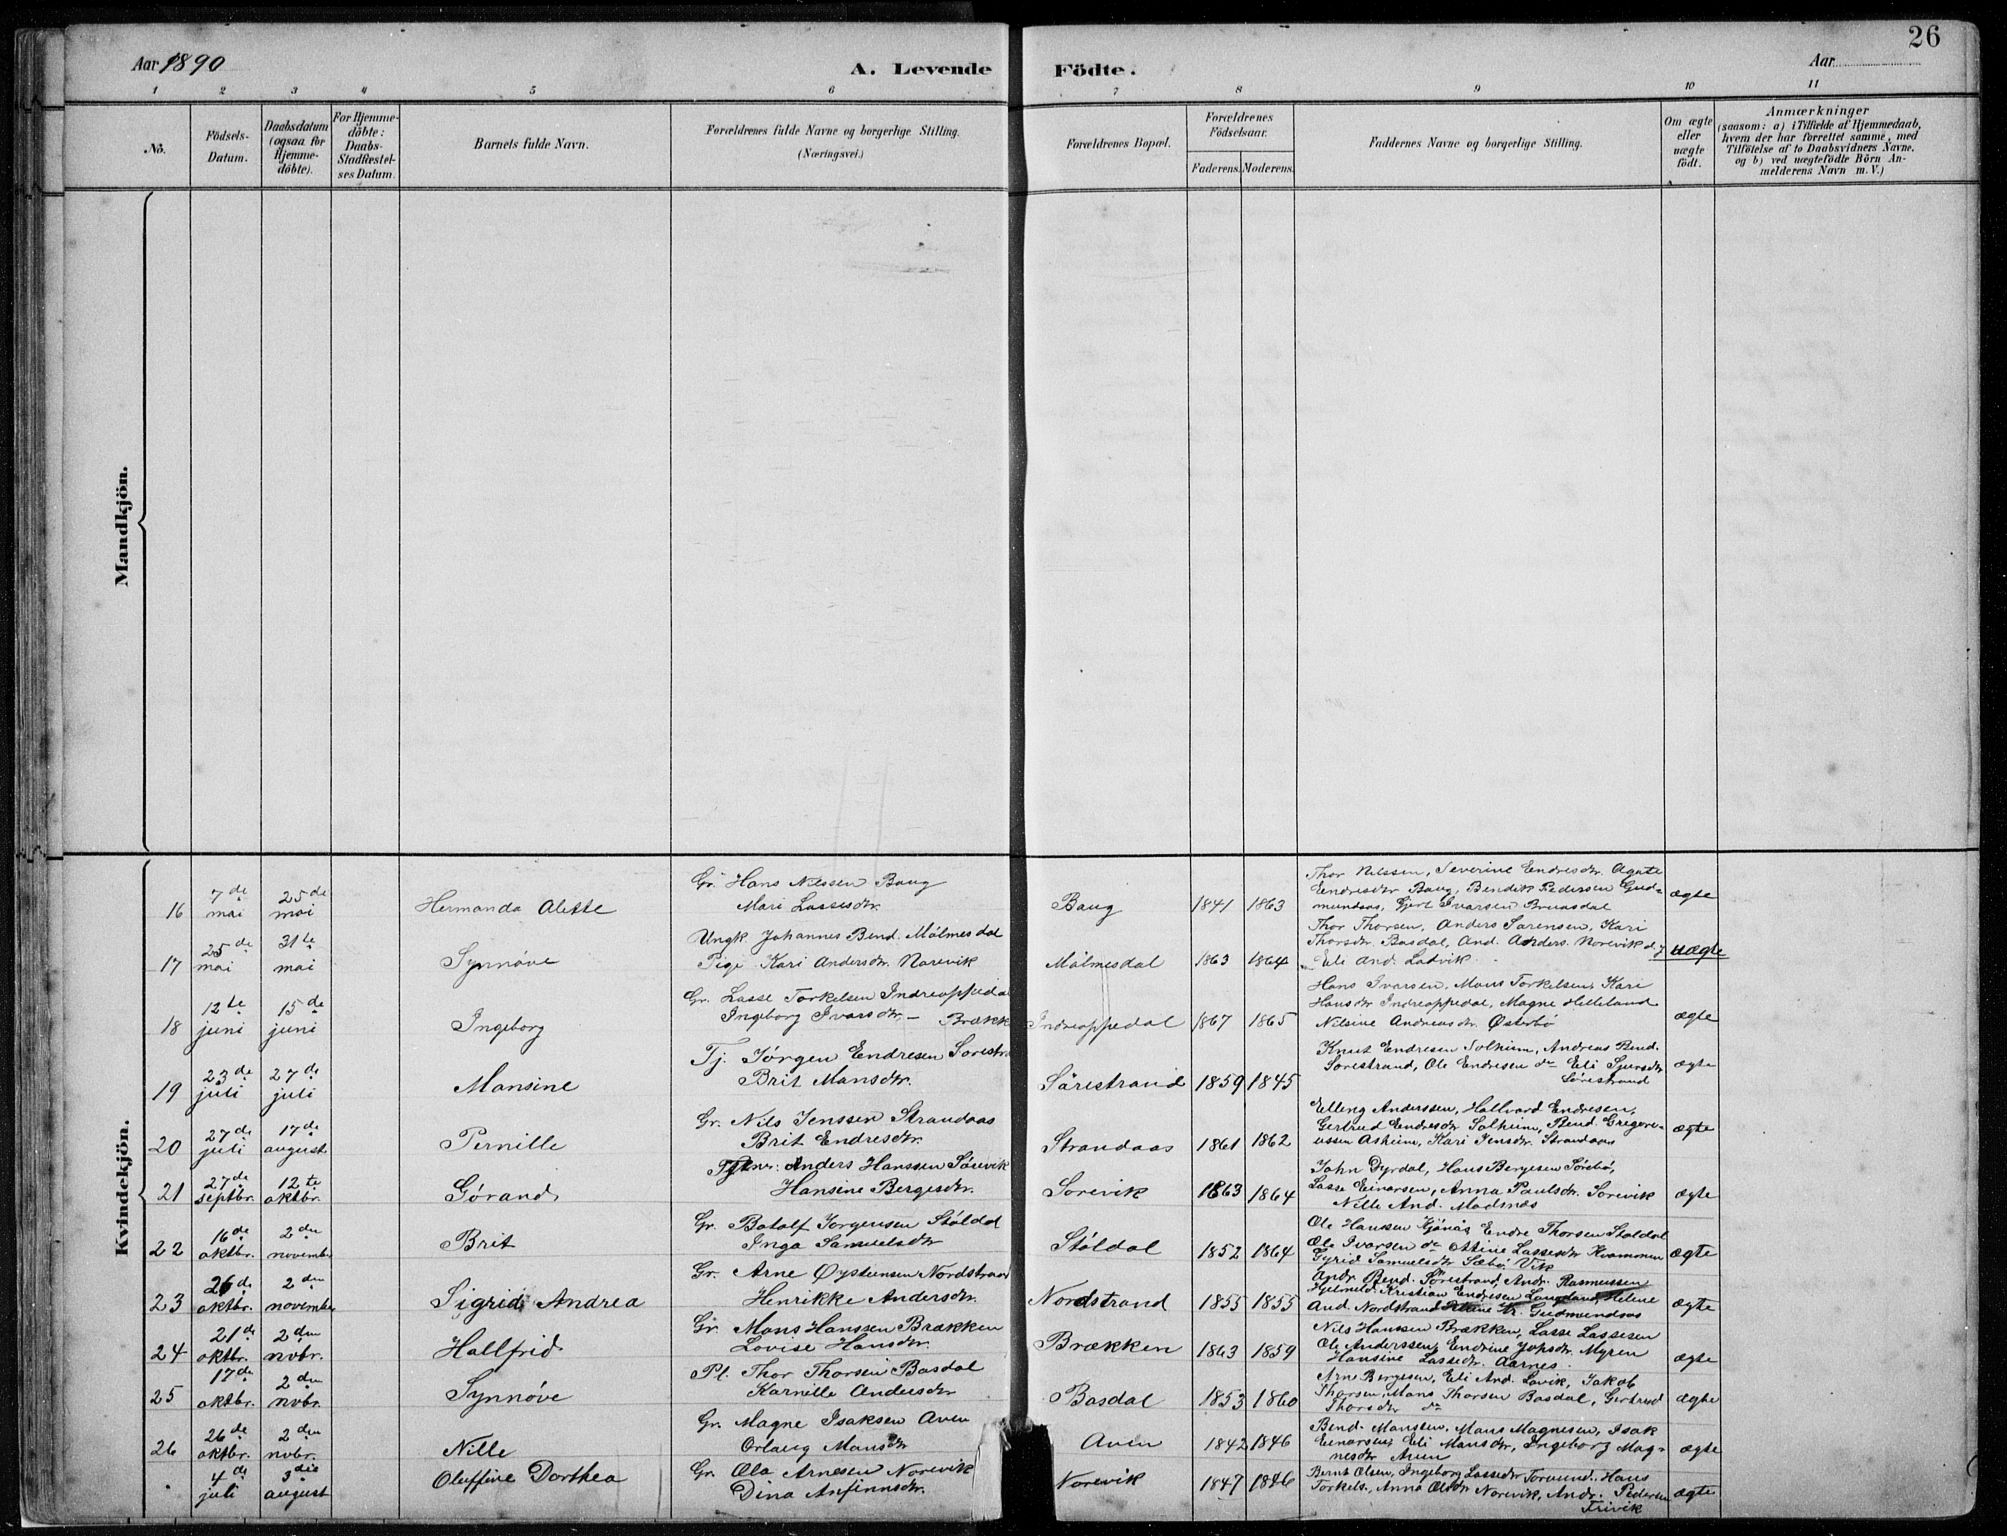 26
Aar 1890
A. Levende Födte.
Aar
1 2 3 4 5 6 7 8 9 10 11
No.
Födsels-Datum.
Daabsdatum (ogsaa for Hjemmedöbte).
For Hjemmedöbte: Daabs-Stadfæstelses Datum.
Barnets fulde Navn.
Forældrenes fulde Navne og borgerlige Stilling.
(Næringsvei.)
Forældrenes Bopæl.
Forældrenes Födselsaar.
Faderens. Moderens.
Faddernes Navne og borgerlige Stilling.
Om ægte eller uægte født.
Anmærkninger
(saasom: a) i Tilfælde af Hjemmedaab, hvem der har forrettet samme, med Tilföielse af to Daabsvidners Navne, og b) ved uægtefödte Börn Anmelderens Navn m. V.)
Mandkjön.
Kvindekjön.
16 7de mai 25de mai Hermanda Alette Gr. Hans Nilssen Baug Mari Lassesdtr. Baug 1841 1863 Thor Nilssen, Severine Endresdtr. Agate Endresdtr Baug, Bendik Pedersen Gudmundsaas, Gjert Ivarsen Bruasdal ægte
17 25de mai 31te mai Synnøve Ungk Johannes Bend. Mólmesdal Pige Kari Andersdtr. Norevik Mólmesdal 1863 1864 Thor Thorsen, Anders Sørensen, Kari Thorsdtr. Basdal, And. Anders. Norevik Eli And. Ladvik uægte
18 12te juni 15de juni Ingeborg Gr. Lasse Torkelsen Indreoppedal Ingeborg Ivarsdtr. - Brækk Indreoppedal 1867 1865 Hans Ivarsen, Mons Torkelsen, Kari Hansdtr Indreoppedal, Magne Helleland Nilsine Andreasdtr. Østerbø ægte
19 23de juli 27de juli Mansine Tj. Jórgen Endresen Sørestra Brit Mansdtr. Sórestrand 1859 1845 Knut Endresen Solheim, Andreas Bend. Sorestrand, Ole Endresen do Eli Sjursdtr Sørestrand ægte
20 27de juli 17de august Pernille Gr. Nils Jenssen Strandaas Brit Endresdtr. Strandaas 1861 1862 Elling Anderssen, Hallvard Endresen, Gertrud Endresdtr Solheim, Bend. Gregoriussen Asheim, Kari Jensdtr. Strandaas ægte
21 27de septbr. 12te oktbr. Górand Anders Hanssen Sørevik Hansine Bergesdtr. Sorevik 1863 1864 John Dyrdal, Hans Bergesen Sørebø, Lasse Einarsen, Anna Paulsdtr. Sorevik Nille And. Madsnes ægte
22 16de oktbr. 2den november Brit Gr. Botolf Jorgensen Stóldal Inga Samuelsdtr Stóldal 1852 1864 Ole Hanssen Endre Thorsen Stoldal Ole Ivarsen do Ottine Lassesdtr Kvammen Gyrid Samuelsdtr Sæbø, Vik ægte
23 26de oktbr. 2den november Sigrid Andrea Gr. Arne Øystensen Nordstrand Henrikke Andersdtr. Nordstrand 1855 1855 Andr Bend. Sørestrand, Andr. Rasmussen Hjelmeld, Kristian Endresen Helene And. Nordstrand Gudmundsaas ægte
24 21de oktbr. 2den nvbr. Hallfrid Gr. Mons Hanssen Brækken Lovise Hansdtr. Brækken 1863 1859 Nils Hanssen Brækken, Lasse Lassesen Ole Anderssen, Endrine Myren Hansine Lassedtr. Aarnes. ægte
25 17de oktbr. 2den nvbr. Synnøve Pl. Thor Thorsen Basdal Karnille Andersdtr Basdal 1853 1860 Arne Bergesen, Eli And. Lavik, Jakob Thorsen, Mons Thorsen Basdal, Gertrud Thorsdtr do ægte
26 26de oktbr. 2den nvbr. Nille Gr. Magne Isaksen Aven Orlaug Monsdtr Aven 1842 1846 Bend. Monssen, Mons Magnesen, Isak Einarsen, Eli Monsdtr, Ingeborg Magnesdtr Aven ægte
4de juli 3die august Oluffine Dorthea Gr. Ola Arnesen Norevik Dina Anfinnsdtr. Norevik 1847 1846 Bernt Olsen, Ingeborg Lassedtr Torvund, Hans Torkels., Anna Olsdtr Norevik, Andr. Pedersen Trivik ægte